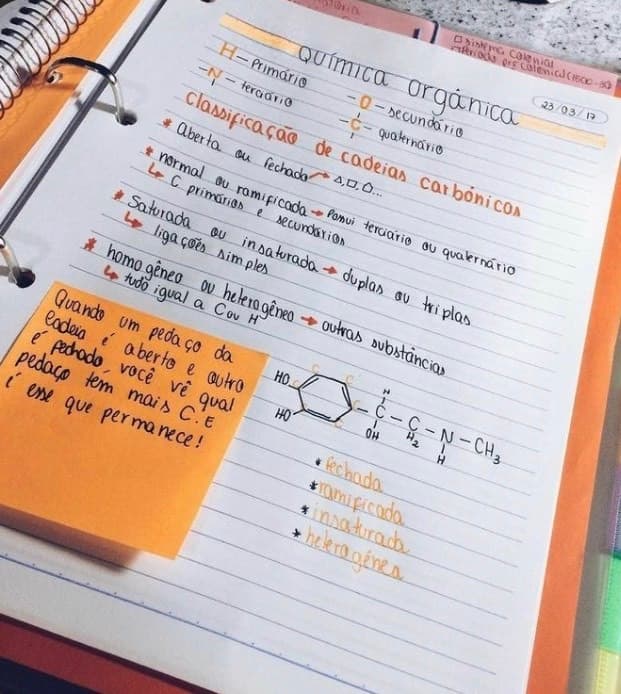 □ Sistema Colonial
Química orgânica
23/03/17
H - Primário
- O - secundário
- N - terciário
- C - quaternário
Classificação de cadeias carbônicas
* Aberta ou fechada → △, □, ⬠...
* normal ou ramificada → Possui terciário ou quaternário
↳ C primários e secundários
* Saturada ou insaturada → duplas ou triplas
↳ ligações simples
* homogêneo ou heterogêneo → outras substâncias
↳ tudo igual a C ou H
Quando um pedaço da
cadeia é aberto e outro
é fechado, você vê qual
pedaço tem mais C. E
é esse que permanece!
C C
HO C C H
HO C C - C - C - N - CH3
OH H2 H
* fechada
* ramificada
* insaturada
* heterogênea